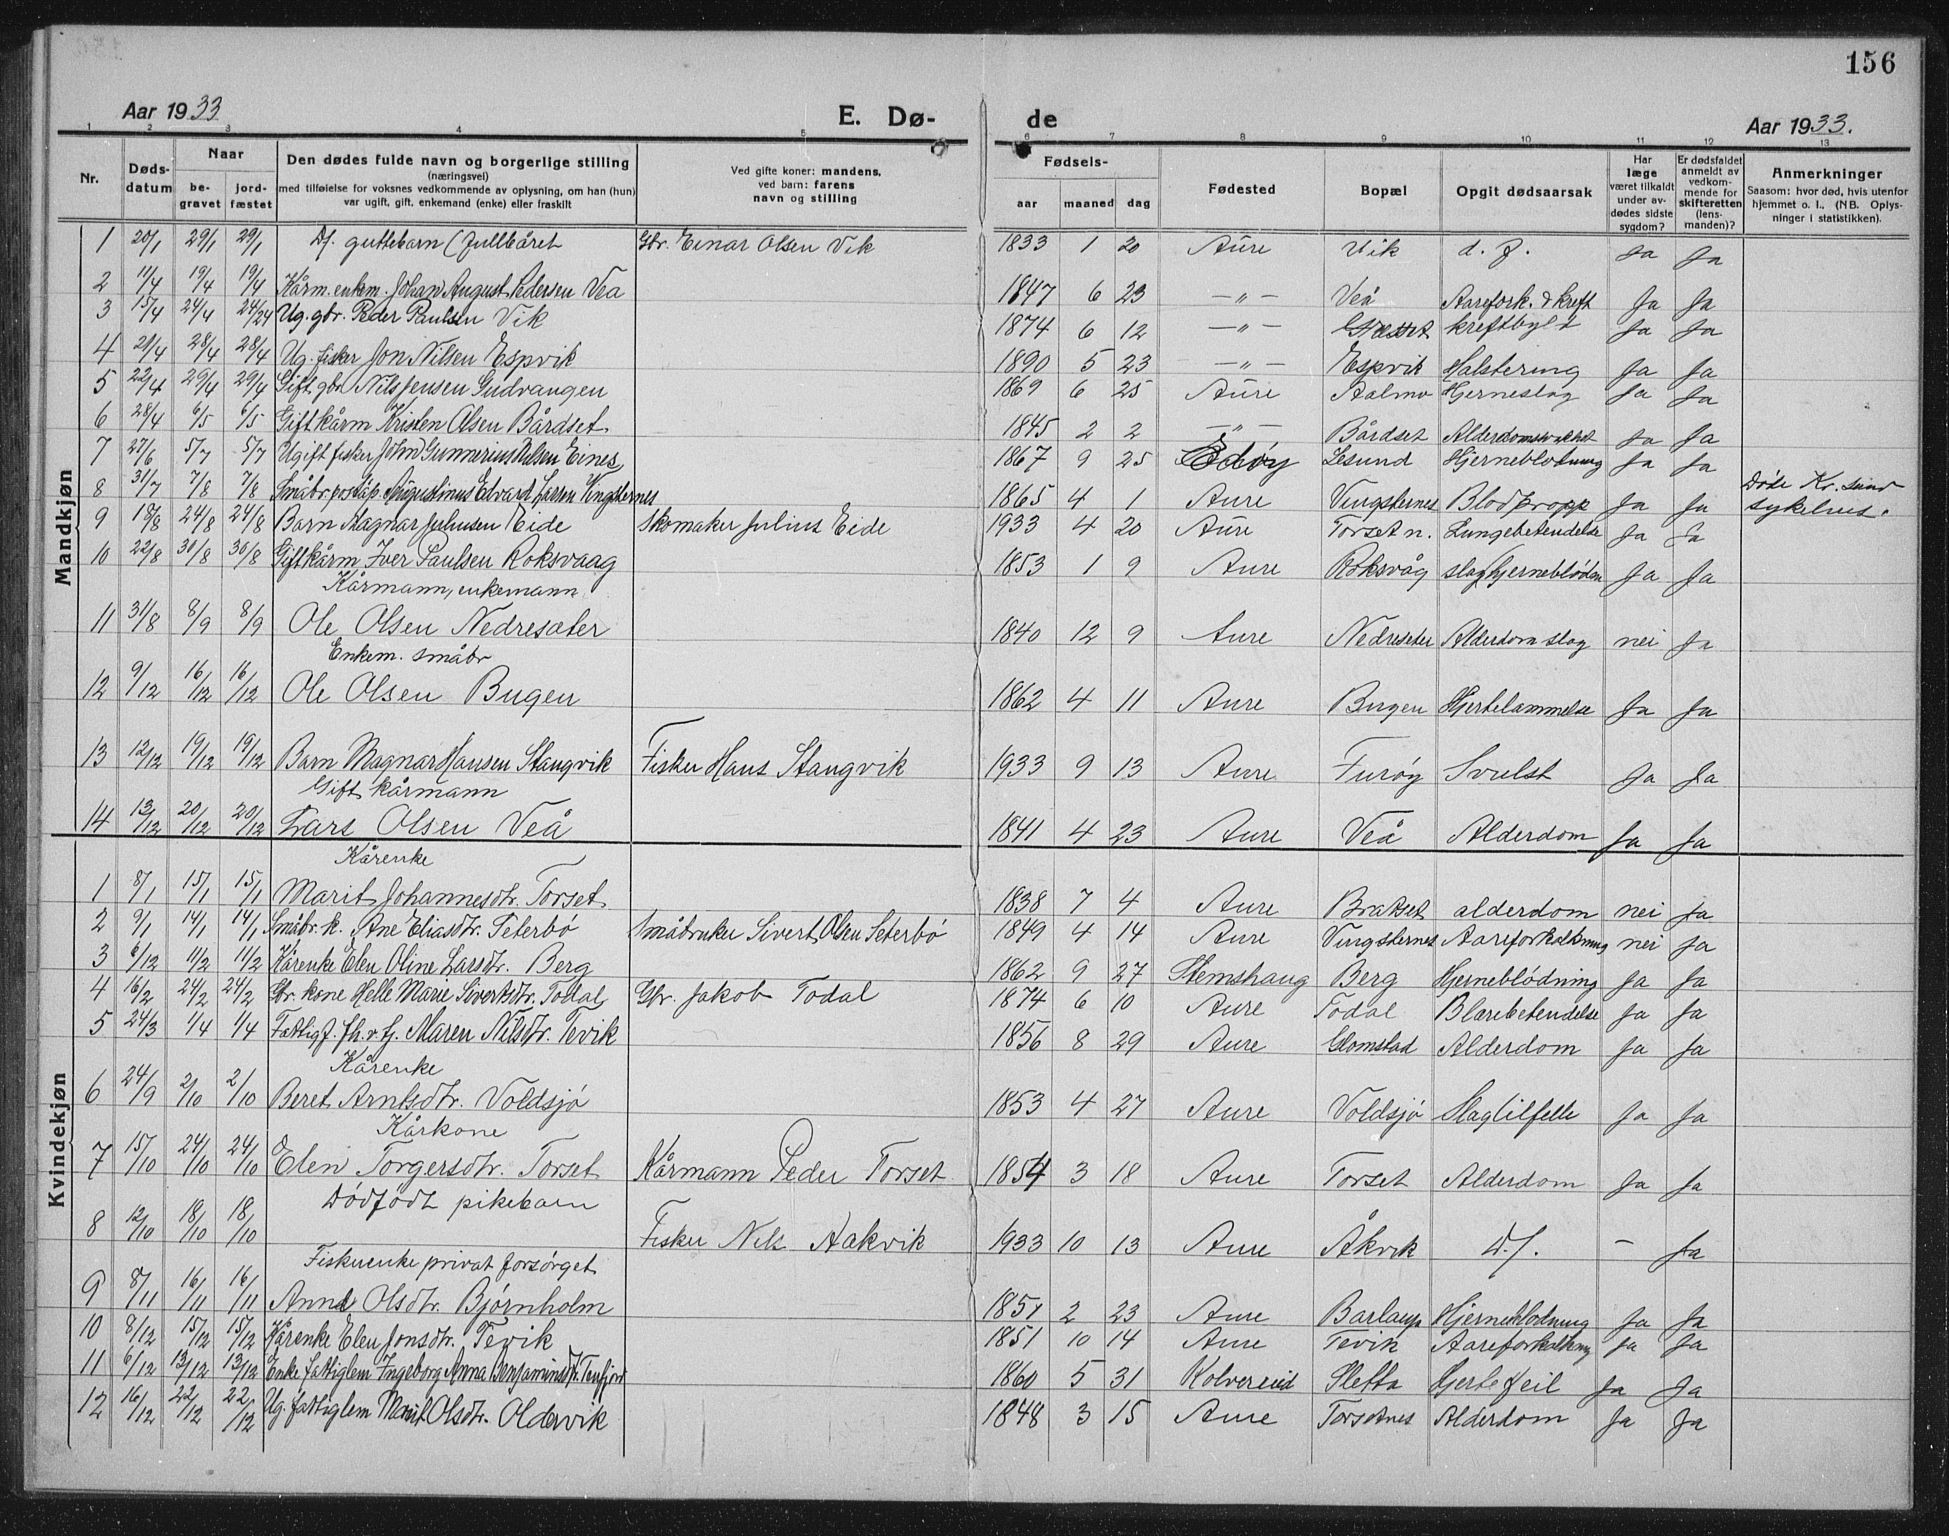 156
Aar 1933
E. Dø-
de
Aar 1933.
1 2 3 4 5 6 7 8 9 10 11 12 13
Nr.
Døds-
datum
Naar
be-
gravet
jord-
fæstet
Den dødes fulde navn og borgerlige stilling
(næringsvei)
med tilføielse for voksnes vedkommende av oplysning, om han (hun)
var ugift, gift, enkemand (enke) eller fraskilt
Ved gifte koner: mandens,
ved barn: farens
navn og stilling
Fødsels-
aar maaned dag
Fødested
Bopæl
Opgit dødsaarsak
Har
læge
været tilkaldt
under av-
dødes sidste
sygdom?
Er dødsfaldet
anmeldt av
vedkom-
mende for
skifteretten
(lens-
manden)?
Anmerkninger
Saasom: hvor død, hvis utenfor
hjemmet o. l., (NB. Oplys-
ninger i statistikken).
Mandkjøn
1 20/1 29/1 29/1 Df. guttebarn (fullbåret Gbr. Einar Olsen Vik 1833 1 20 Aure Vik d. f. Ja Ja
2 11/4 19/4 19/4 Kårm. enkem. Johan August Pedersen Veå 1847 6 23 -"- Veå Aarefork. & kreft Ja Ja
3 15/4 24/4 24/24 Ug. gbr. Peder Paulsen Vik 1874 6 12 -"- kreftbyld Ja Ja
4 21/4 28/4 28/4 Ug. fisker Jon Nilsen Espvik 1890 5 23 -"- Espvik Halstering Ja Ja
5 22/4 29/4 29/4 Gift gbr. Nils Jensen Gudvangen 1869 6 25 Aure Aalmo Hjerneslag Ja Ja
6 28/4 6/5 6/5 Gift kårm Kristen Olsen Bårdset 1845 2 2 -"- Bårdset Alderdomsvakhet Ja Ja
7 27/6 5/7 5/7 Ugift fisker John Gunnerius Nilsen Eines 1867 9 25 Edøy Lesund Hjerneblødning Ja Ja
8 31/7 7/8 7/8 Småbr. poståp. Augustinus Edvard Larsen Vingsternes 1865 4 1 Aure Vingsternes Blodpropp Ja Ja Døde Kr.sund
sykehus.
9 18/8 24/8 24/8 Barn Magnar Juliusen Eide Skomaker Julius Eide 1933 4 20 Aure Torset n. Lungebetendelse Ja Ja
10 22/8 30/8 30/8 Gift kårm Iver Paulsen Roksvaag 1853 1 9 Aure Roksvåg slag hjernebløden Ja Ja
Kårmann, enkemann
11 31/8 8/9 8/9 Ole Olsen Nedresæter 1840 12 9 Aure Nedreseter Alderdom slag nei Ja
Enkem. småbr
12 9/12 16/12 16/12 Ole Olsen Bugen 1862 4 11 Aure Bugen Hjertelammelse Ja Ja
13 12/12 19/12 19/12 Barn Magnar Hansen Stangvik Fisker Hans Stangvik 1933 9 13 Aure Furøy Svulst Ja Ja
Gift kårmann
14 13/12 20/12 20/12 Lars Olsen Veå 1841 4 23 Aure Veå Alderdom Ja Ja
Kvindekjøn
Kårenke
1 8/1 15/1 15/1 Marit Johannesdtr. Torset 1838 7 4 Aure Bratset alderdom nei Ja
2 9/1 14/1 14/1 Småbr. k. Ane Eliasdtr. Seterbø Småbruker Sivert Olsen Seterbø 1849 4 14 Aure Vingsternes Aareforkalkning nei Ja
3 6/12 11/2 11/2 Kårenke Elen Oline Larsdtr. Berg 1862 9 27 Stemshaug Berg Hjerneblødning Ja Ja
4 16/2 24/2 24/2 Gbr. kone Helle Marie Sivertsdtr. Todal Gbr. Jakob Todal 1874 6 10 Aure Todal Blærebetendelse Ja Ja
5 24/3 1/4 1/4 Fattigf. fh. v. fj. Maren Nilsdtr. Tevik 1856 8 29 Aure Glomstad Alderdom Ja Ja
Kårenke
6 24/9 2/10 2/10 Beret Arntsdtr. Voldsjø 1853 4 27 Aure Voldsjø Slagtilfelle Ja Ja
Kårkone
7 15/10 24/10 24/10 Elen Torgersdtr. Torset Kårmann Peder Torset 1854 3 18 Aure Torset Alderdom Ja Ja
Dødfødt pikebarn
8 12/10 18/10 18/10 Fisker Nils Aakvik 1933 10 13 Aure Åkvik d.f. - Ja
Fiskerenke privat forsørget
9 8/11 16/11 16/11 Anna Olsdtr. Bjørnholm 1851 2 23 Aure Barlaup Hjerneblødning Ja Ja
10 8/12 15/12 15/12 Kårenke Elen Jonsdtr. Tevik 1851 10 14 Aure Tevik Aareforkalkning Ja Ja
11 6/12 13/12 13/12 Enke fattiglem Ingeborg Anna Benjaminsdtr. Tenfjord 1860 5 31 Kolvereid Sletta Hjertefeil Ja Ja
12 16/12 22/12 22/12 Ug. fattiglem Marit Olsdtr. Oldervik 1848 3 15 Aure Torsetnes Alderdom Ja Ja